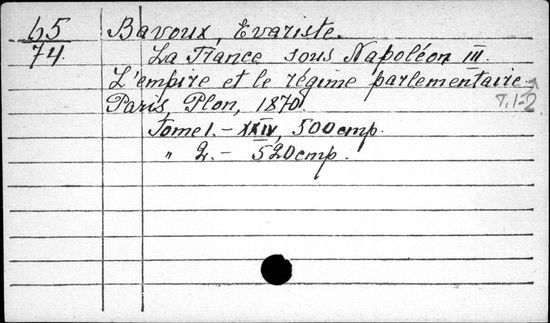 65 Bavoux, Evariste.
74 La France sous Napoléon III.
L'empire et le régime parlementaire.
Paris, Plon, 1870.
T. 1-2
Tome 1. - XXIV, 500 стр.
" 2. - 520 стр.